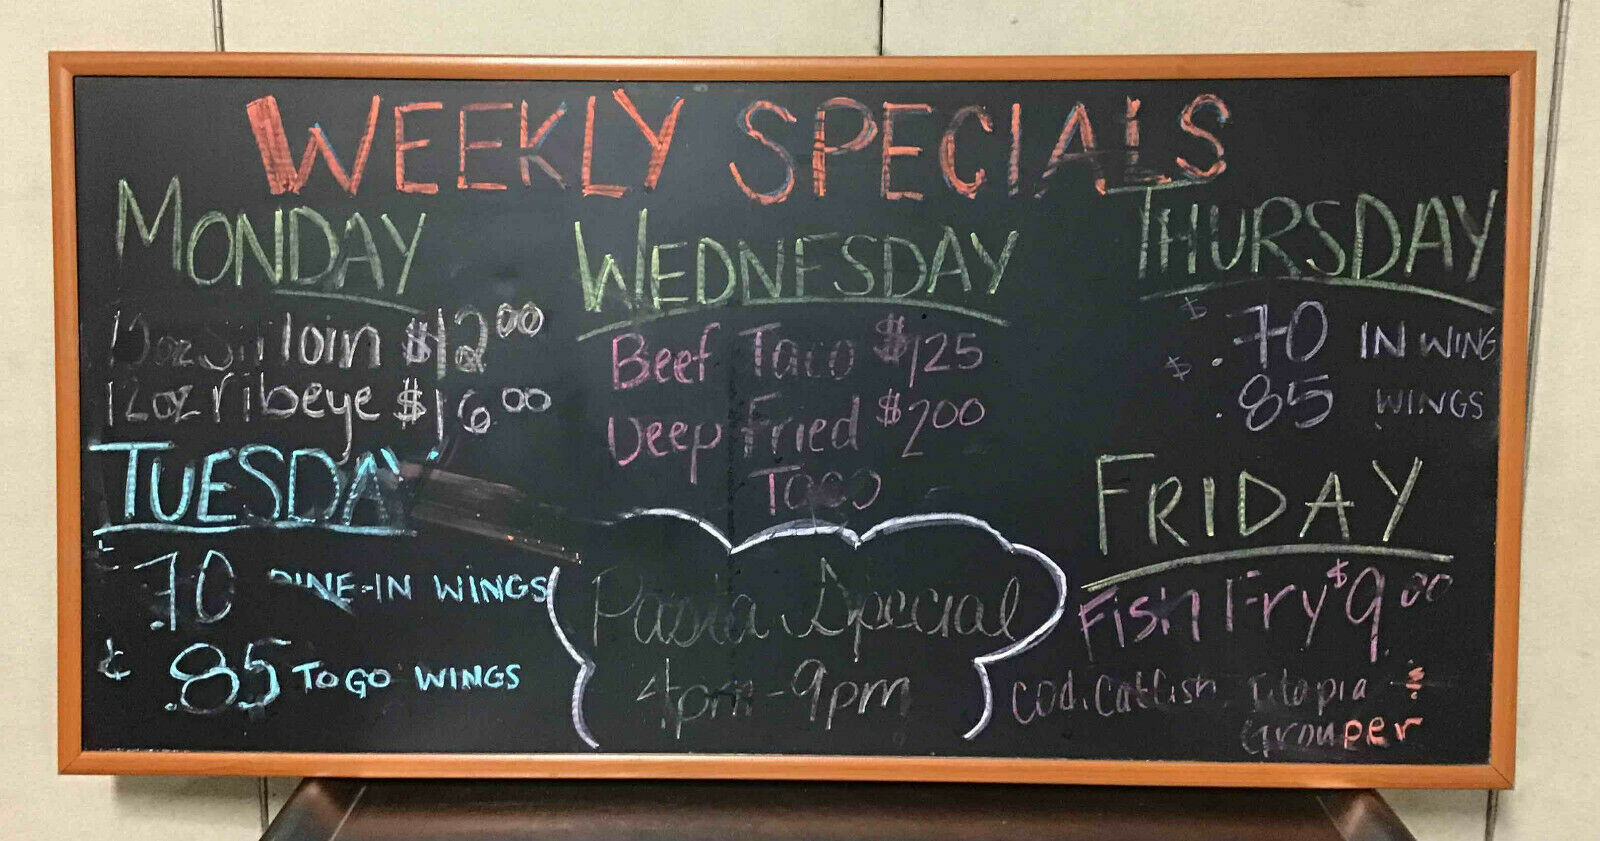 WEEKLY SPECIALS
MONDAY
12oz sirloin $12.00
12oz ribeye $16.00
TUESDAY
.70 DINE-IN WINGS
.85 TO GO WINGS
WEDNESDAY
Beef Taco $1.25
Deep Fried $2.00
Taco
Pasta Special
4pm-9pm
THURSDAY
$.70 IN WING
$.85 WINGS
FRIDAY
Fish Fry $9.00
Cod, Catfish, Tilapia &
Grouper